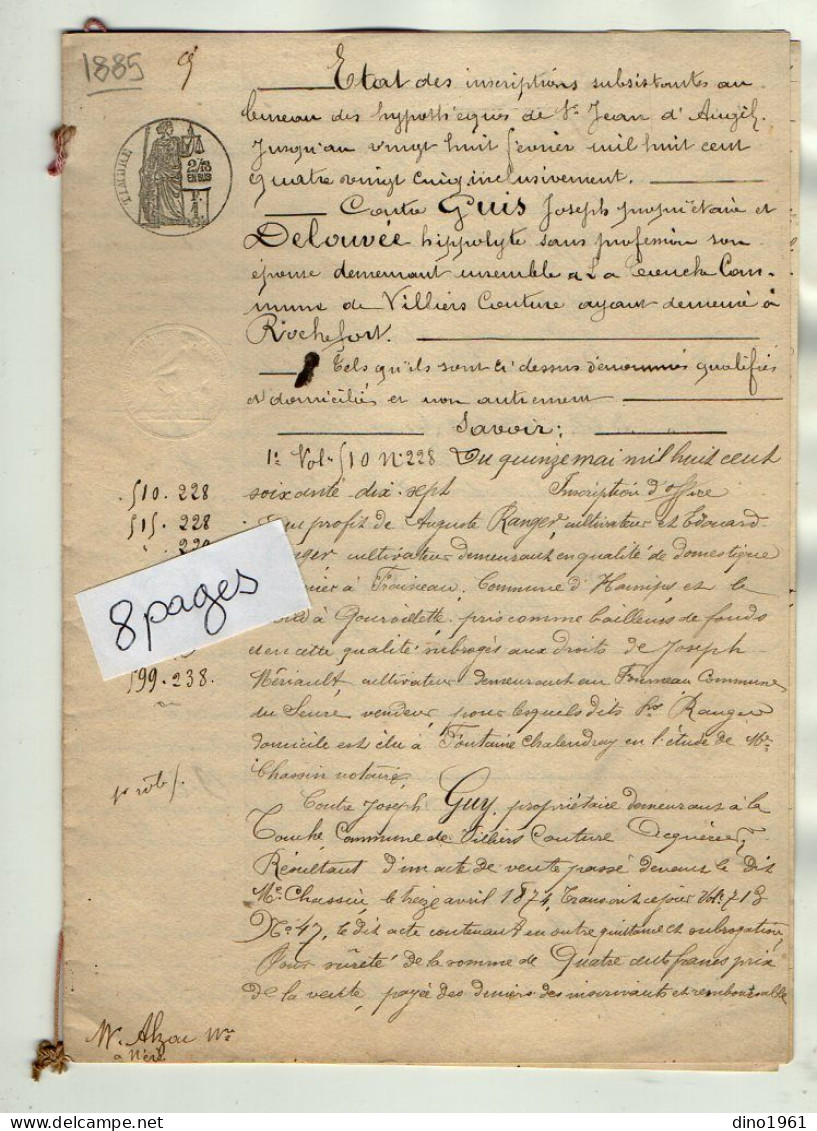 1885
9
Etat des inscriptions subsistantes au
bureau des hypothèques de St Jean d'Angély
Jusqu'au vingt huit février mil huit cent
quatre vingt cinq, inclusivement.
TIMBRE
2/10
EN SUS
Contre Guis Joseph propriétaire et
Delouvée hippolyte sans profession son
épouse demeurant ensemble à La Touche Com-
mune de Villiers Couture ayant demeuré à
Rochefort.
Tels qu'ils sont ci dessus dénommés qualifiés
et domiciliés et non autrement
Savoir:
1º Vol. 510 Nº 228 Du quinze mai mil huit cent
510. 228 soixante dix. sept Inscription d'office
515. 228 au profit de Auguste Ranger, cultivateur et Edouard
cultivateur demeurant en qualité de domestique
8 pages
à Commune d' et le
à Gourvillette. pris comme bailleurs de fonds
et en cette qualité subrogés aux droits de Joseph
599. 238. Mériault, cultivateur demeurant au Commune
du Seure vendeur, pour lesquels dits Ranger
domicile est élu à Fontaine Chalendray en l'étude de Me
Chassin notaire,
Contre Joseph Guy, propriétaire demeurant à la
Touche Commune de Villiers Couture Acquéreur,
Résultant d'un acte de vente passé devant le dit
Me Chassin, le treize avril 1874, Transcrit ce jour Vol. 713
Nº 47, le dit acte contenant en outre quittance et subrogation
Pour sûreté de la somme de Quatre cents francs prix
de la vente, payée des deniers des inscrivants et remboursable
à Néré
dino1961